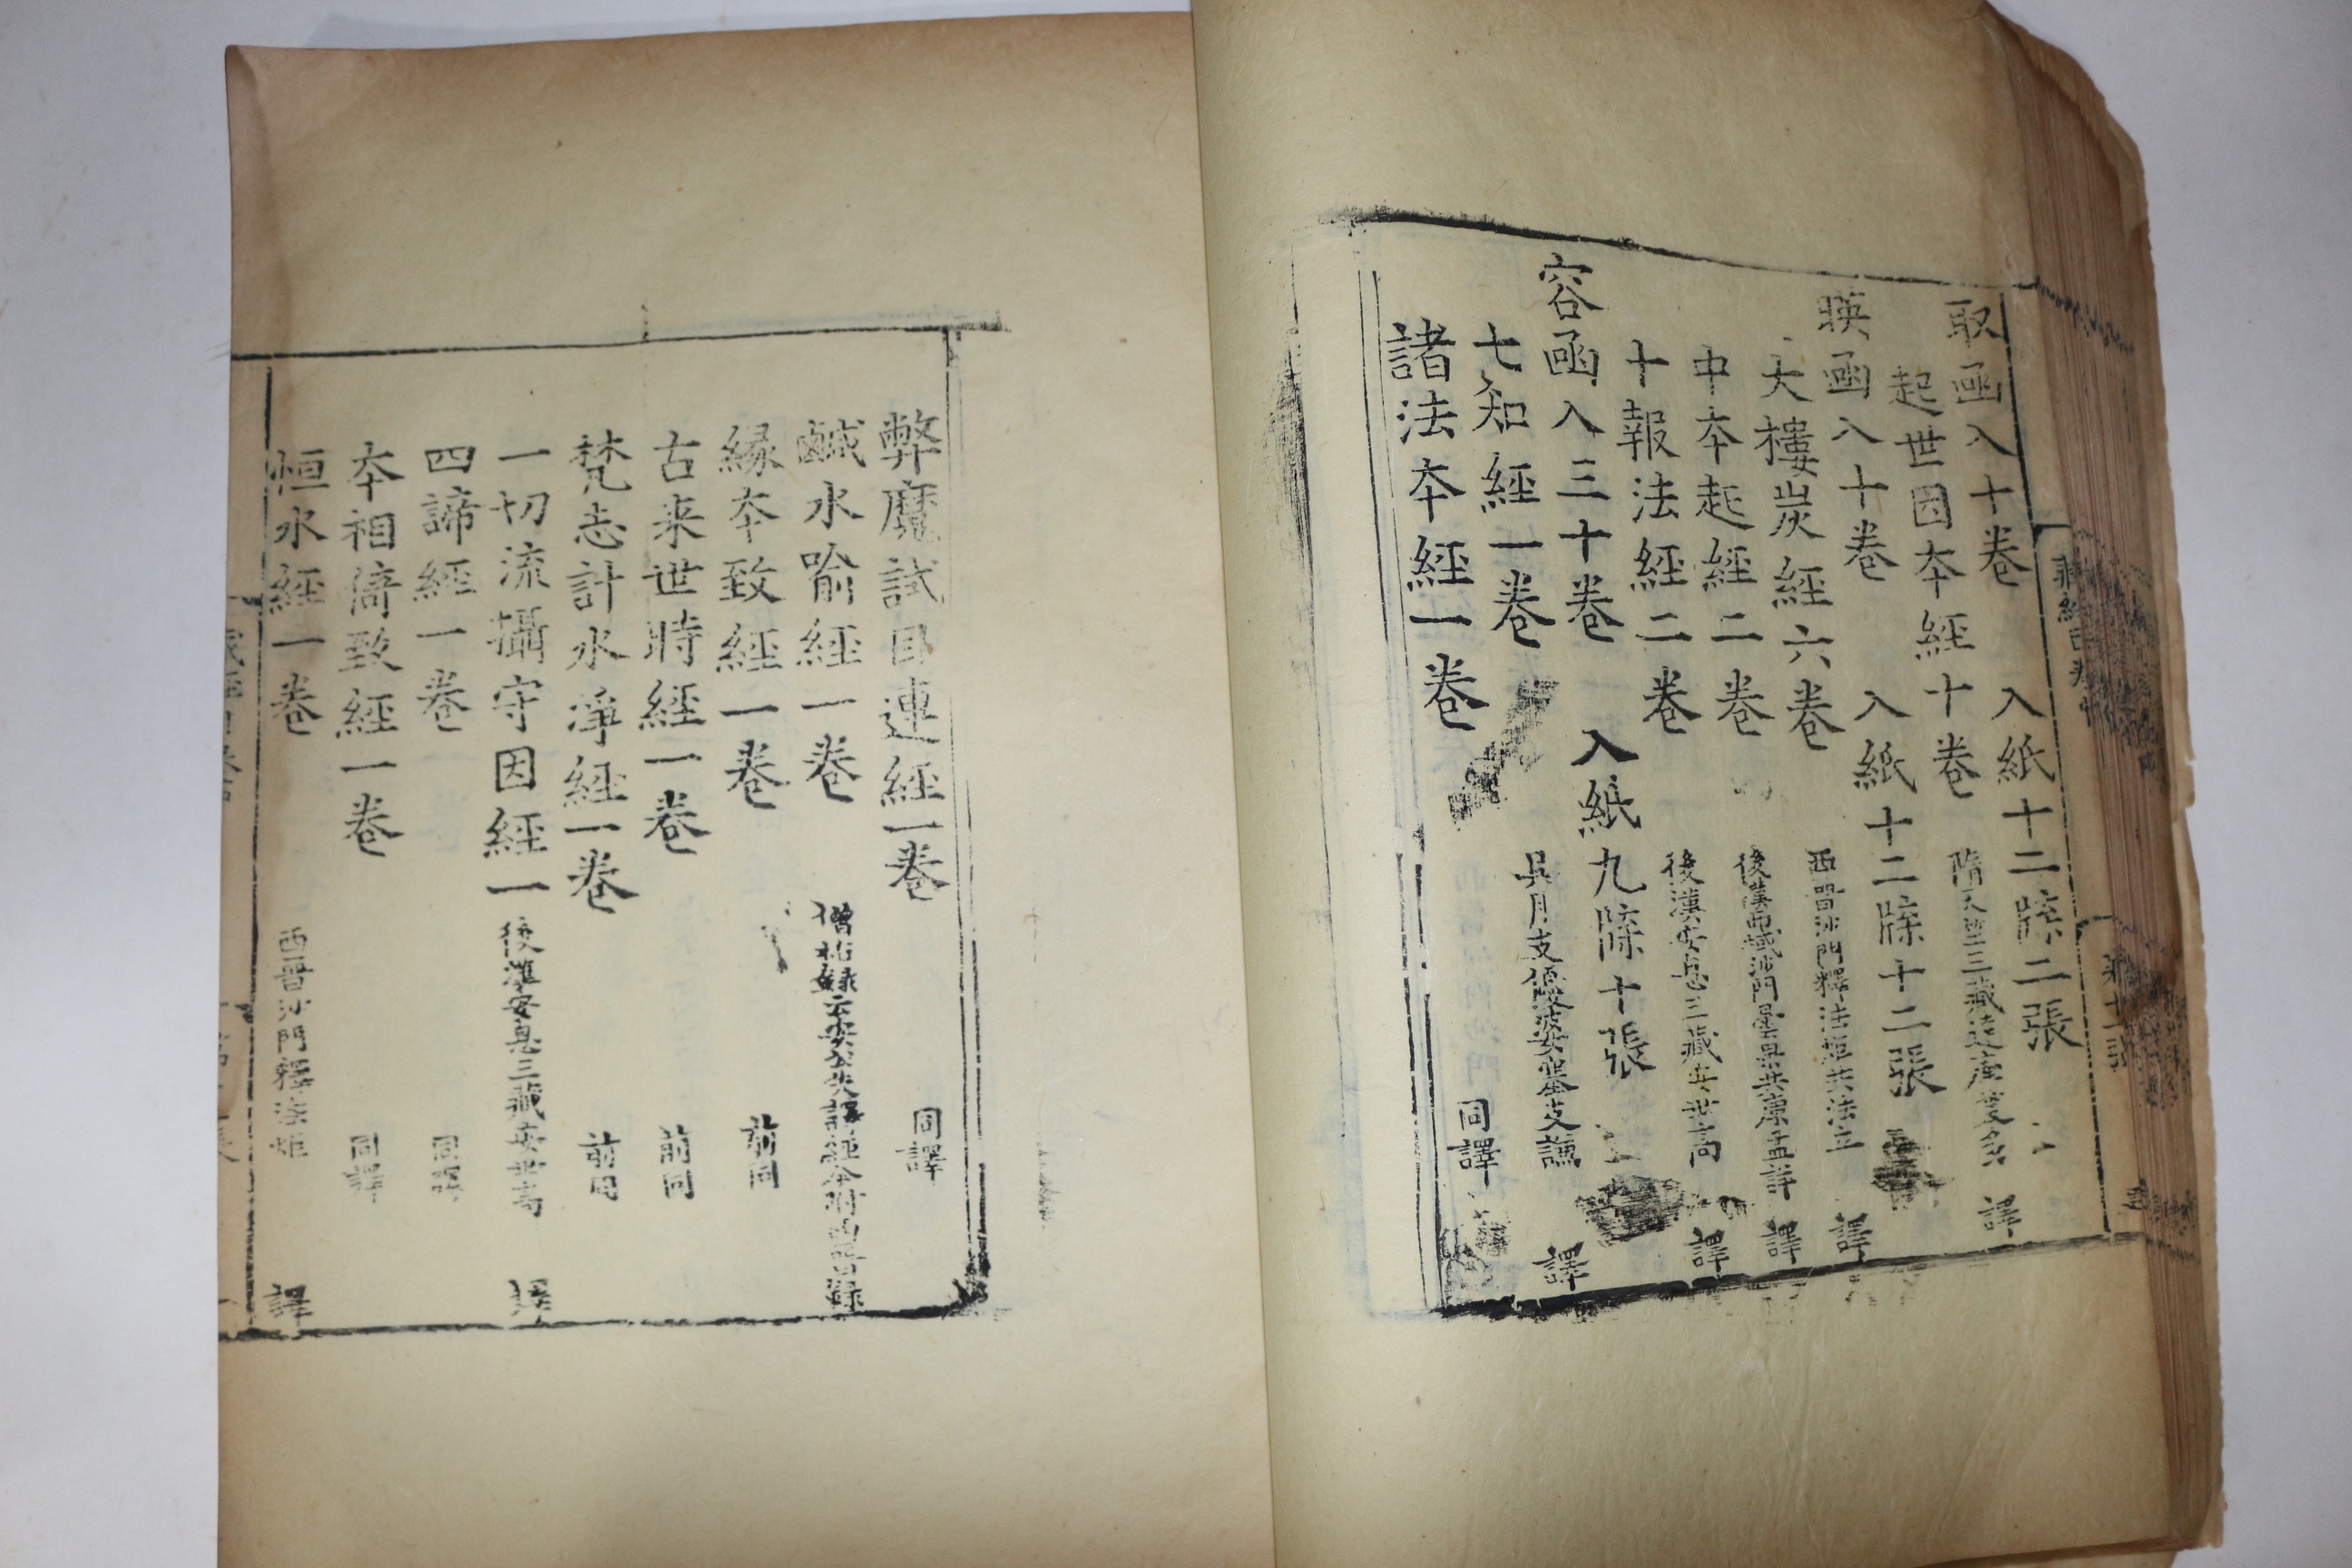 取函入十卷 入紙十二牒二張
起世因夲經十卷 隋天竺三藏達摩笈多 譯
暎函入十卷 入紙十二牒十二張
大樓炭經六卷 西晉沙門釋法炬共法立 譯
中夲起經二卷 後漢西域沙門曇果共康孟詳 譯
十報法經二卷 後漢安息三藏安世高 譯
容函入三十卷 入紙九牒十張
七知經一卷 吳月支優婆塞支謙 譯
諸法夲經一卷 同譯
弊魔試目連經一卷 同譯
鹹水喻經一卷 僧祐錄云安公失譯經今附西晉錄
縁夲致經一卷 前同
古来世時經一卷 前同
梵志計水淨經一卷 前同
一切流攝守因經一 後漢安息三藏安世高 譯
四諦經一卷 同譯
夲相倚致經一卷 同譯
恒水經一卷 西晉沙門釋法炬 譯